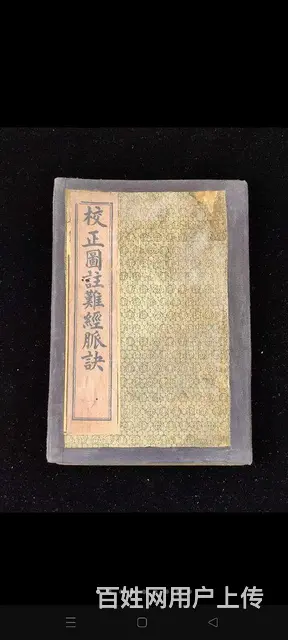 校正圖註難經脈訣
百姓网用户上传